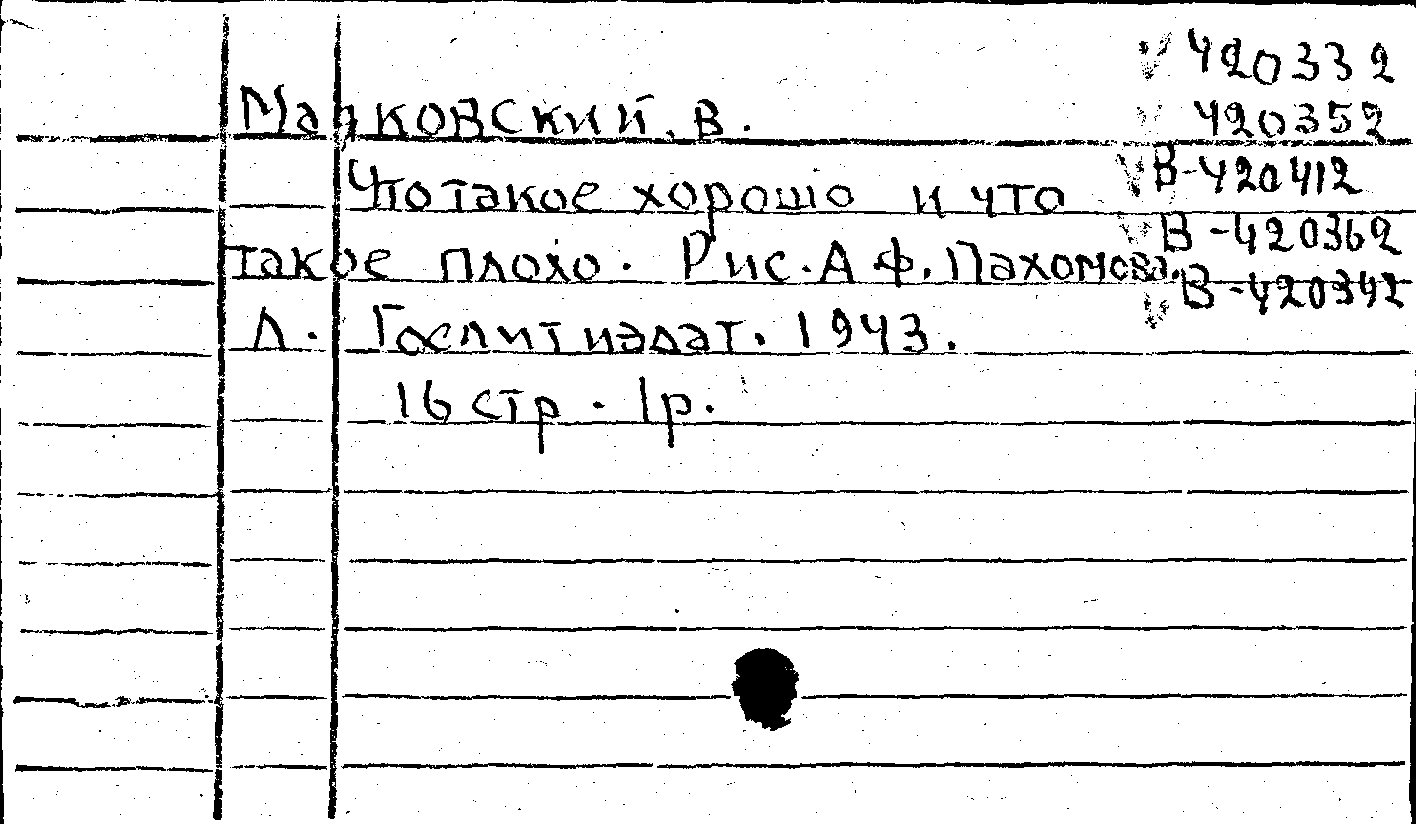 420332
Маяковский, В.
420352
Что такое хорошо и что
В-420412
В-420362
такое плохо. Рис. А Ф. Пахомова.
В-420342
Л. Гослитиздат. 1943.
16 стр. 1р.